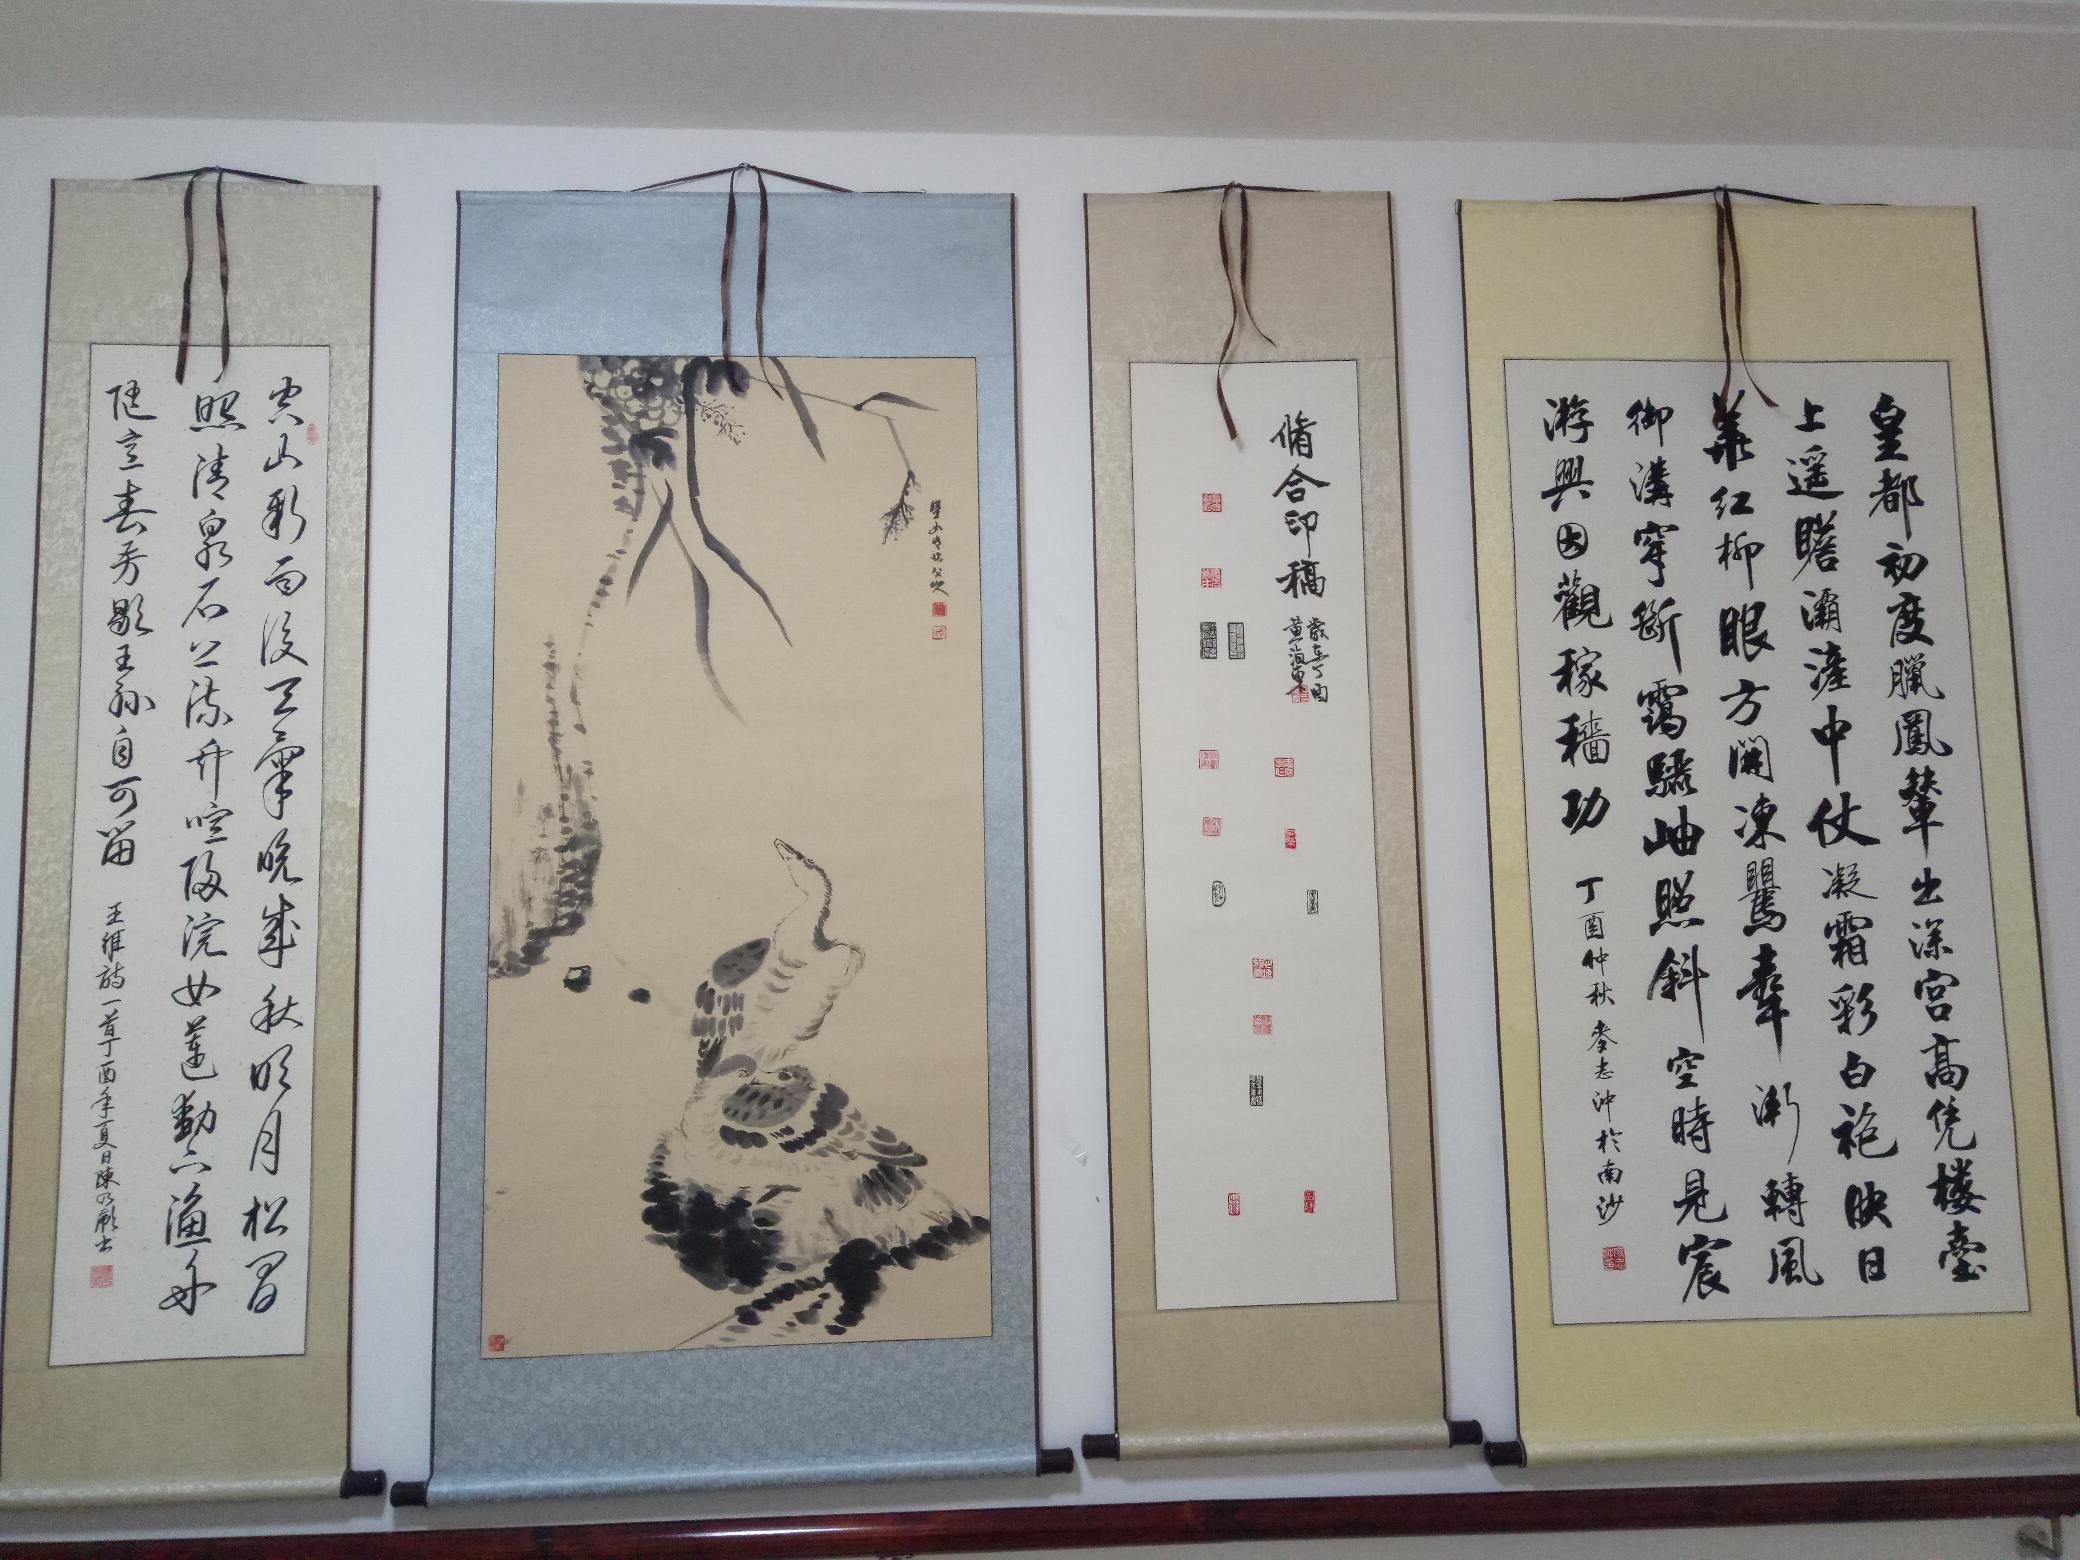 皇都初度臘鳳輦出深宮高凭楼臺
上遥瞻灞滻中仗凝霜彩白袍映日
華红柳眼方開凍鸎聲漸轉風
御溝穿斷靄驪岫照斜空時見宸
游興因觀稼穡功
丁酉仲秋麥志沖於南沙
脩合印稿
歲在丁酉
空山新雨後天氣晚来秋明月松間
照清泉石上流竹喧歸浣女蓮動下漁舟
随意春芳歇王孫自可留
王維詩一首丁酉年夏日陳乃蔚书